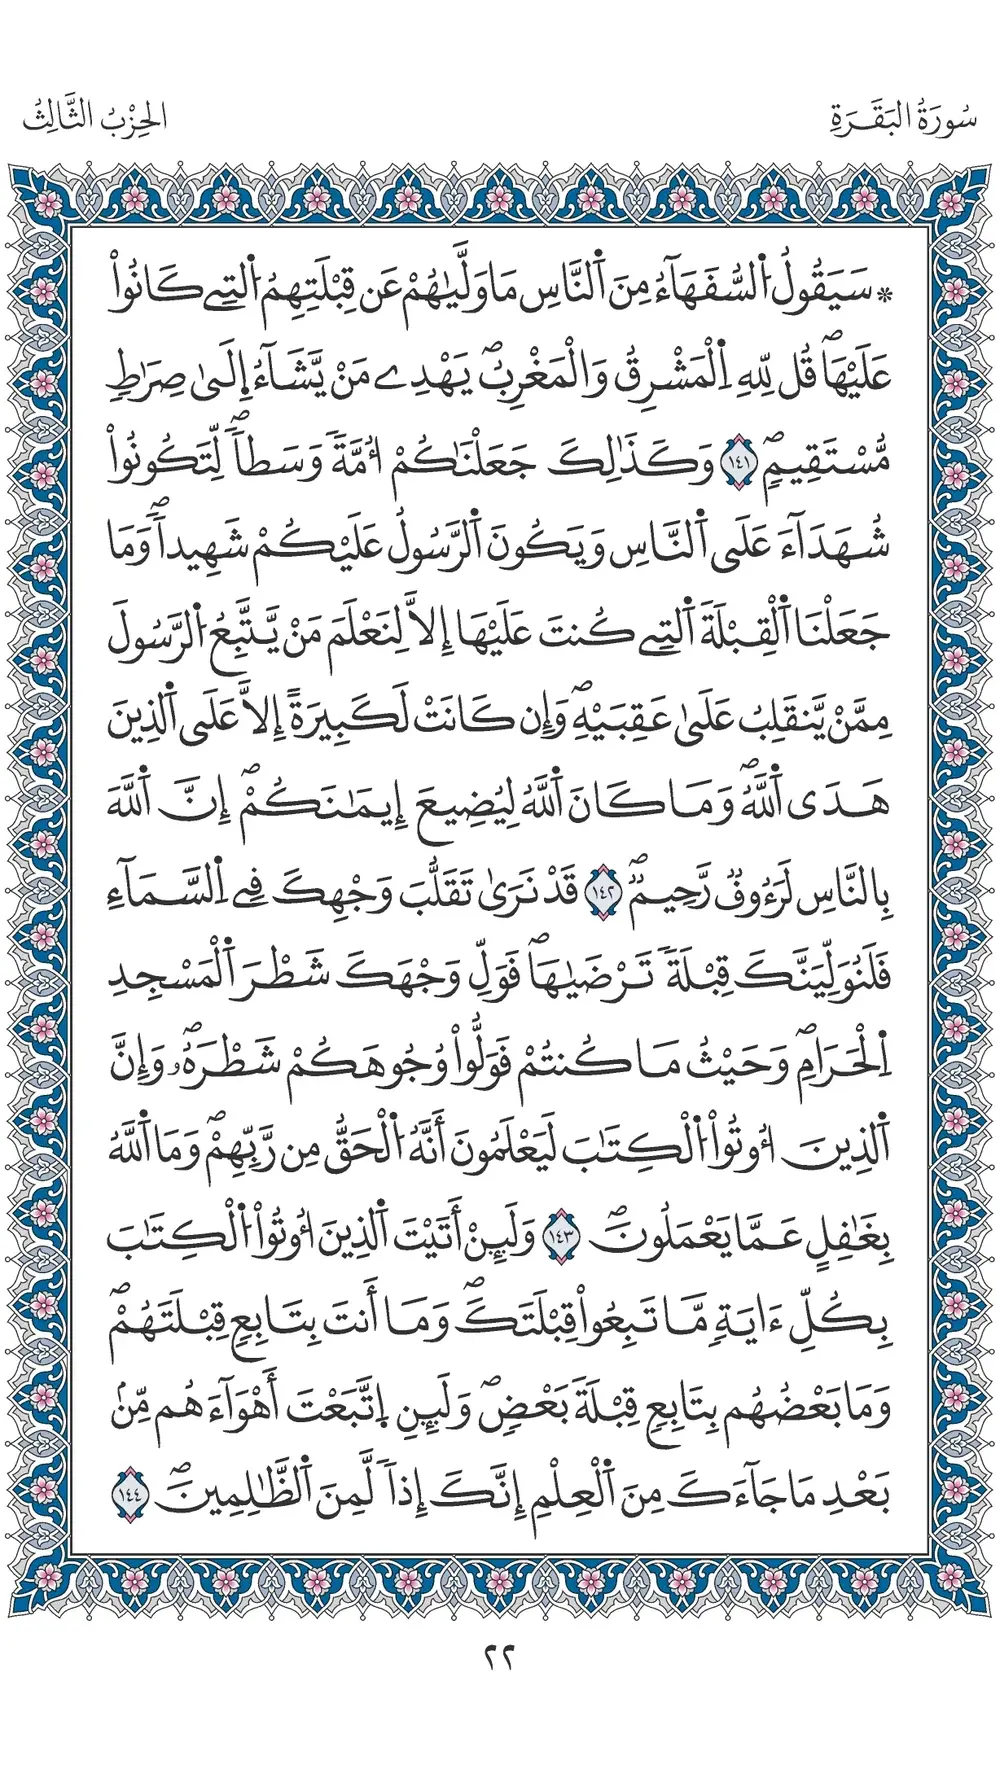 سُورَةُ البَقَرَةِ
الحِزْبُ الثَّالِثُ
* سَيَقُولُ اُ۬لسُّفَهَآءُ مِنَ اَ۬لنَّاسِ مَا وَلَّيٰهُمْ عَن قِبْلَتِهِمُ اُ۬لتِے كَانُواْ
عَلَيْهَاۖ قُل لِّلهِ اِ۬لْمَشْرِقُ وَالْمَغْرِبُۖ يَهْدِے مَنْ يَّشَآءُ اِ۪لَىٰ صِرَٰطٖ
مُّسْتَقِيمٖۖ ١٤١ وَكَذَٰلِكَ جَعَلْنَٰكُمُۥٓ أُمَّةٗ وَسَطاٗ لِّتَكُونُواْ
شُهَدَآءَ عَلَى اَ۬لنَّاسِ وَيَكُونَ اَ۬لرَّسُولُ عَلَيْكُمْ شَهِيداٗۖ وَمَا
جَعَلْنَا اَ۬لْقِبْلَةَ اَ۬لتِے كُنتَ عَلَيْهَا إِلَّا لِنَعْلَمَ مَنْ يَّتَّبِعُ اُ۬لرَّسُولَ
مِمَّنْ يَّنقَلِبُ عَلَىٰ عَقِبَيْهِۖ وَإِن كَانَتْ لَكَبِيرَةً إِلَّا عَلَى اَ۬لذِينَ
هَدَى اَ۬للَّهُۖ وَمَا كَانَ اَ۬للَّهُ لِيُضِيعَ إِيمَٰنَكُمْۖ إِنَّ اَ۬للَّهَ
بِالنَّاسِ لَرَءُوفٞ رَّحِيمٞۖ ١٤٢ قَدْ نَرَىٰ تَقَلُّبَ وَجْهِكَ فِے اِ۬لسَّمَآءِ
فَلَنُوَلِّيَنَّكَ قِبْلَةٗ تَرْضَيٰهَاۖ فَوَلِّ وَجْهَكَ شَطْرَ اَ۬لْمَسْجِدِ
اِ۬لْحَرَامِۖ وَحَيْثُ مَا كُنتُمْ فَوَلُّواْ وُجُوهَكُمْ شَطْرَهُۥۖ وَإِنَّ
اَ۬لذِينَ أُوتُواْ اُ۬لْكِتَٰبَ لَيَعْلَمُونَ أَنَّهُ اُ۬لْحَقُّ مِن رَّبِّهِمْۖ وَمَا اَ۬للَّهُ
بِغَٰفِلٍ عَمَّا يَعْمَلُونَۖ ١٤٣ وَلَئِنْ أَتَيْتَ اَ۬لذِينَ أُوتُواْ اُ۬لْكِتَٰبَ
بِكُلِّ ءَايَةٖ مَّا تَبِعُواْ قِبْلَتَكَۖ وَمَا أَنتَ بِتَابِعٖ قِبْلَتَهُمْۖ
وَمَا بَعْضُهُم بِتَابِعٖ قِبْلَةَ بَعْضٖۖ وَلَئِنِ اِ۪تَّبَعْتَ أَهْوَآءَهُم مِّنۢ
بَعْدِ مَا جَآءَكَ مِنَ اَ۬لْعِلْمِ إِنَّكَ إِذاٗ لَّمِنَ اَ۬لظَّٰلِمِينَۖ ١٤٤
٢٢